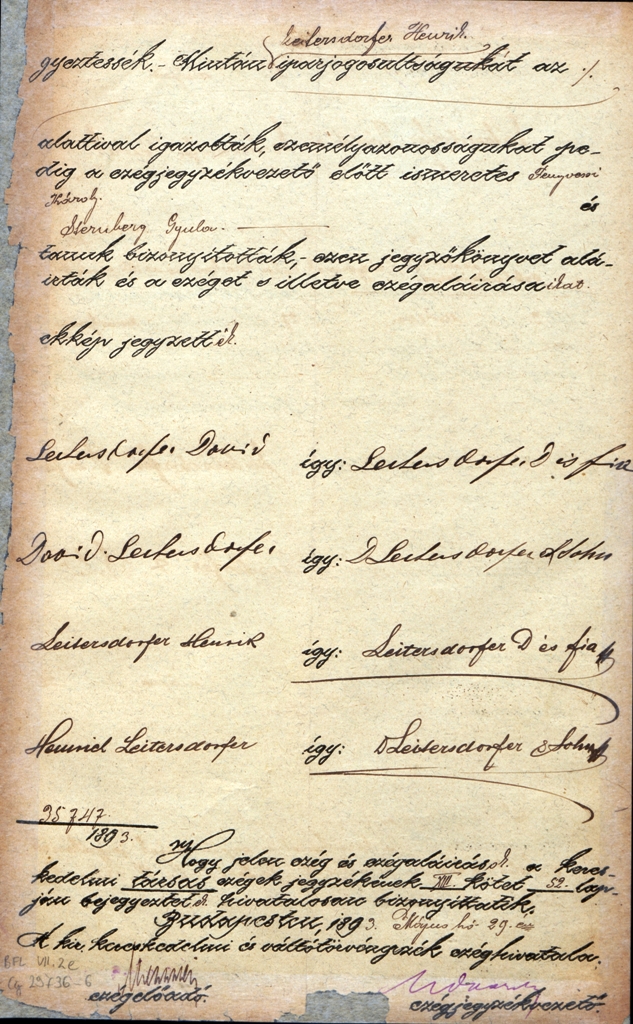 Leitersdorfer Henrik
gyeztessék. - Miután iparjogosultságukat az ·/.
alattival igazolták, személyazonosságukat pe-
dig a czégjegyzékvezető előtt ismeretes Fenyvesi
Károly és
Sternberg Gyula
tanuk bizonyitották, - ezen jegyzőkönyvet alá-
irták és a czéget s illetve czégaláirásaikat
ekkép jegyzették.
Leitersdorfer David így: Leitersdorfer D és fia
David Leitersdorfer így: D Leitersdorfer & Sohn
Leitersdorfer Henrik így: Leitersdorfer D és fia
Heinrich Leitersdorfer így: D Leitersdorfer & Sohn
35747
1893.
Hogy jelen czég és czégaláirások a keres-
kedelmi társas czégek jegyzékének XIII. kötet 52 lap-
ján bejegyeztettek hivatalosan bizonyittatik.
Budapesten, 1893. Május hó 29.-én
A kir. kereskedelmi és váltótörvényszék czéghivatala:
BFL VII. 2e
Cg 29736-6
czégelőadó. czégjegyzékvezető.